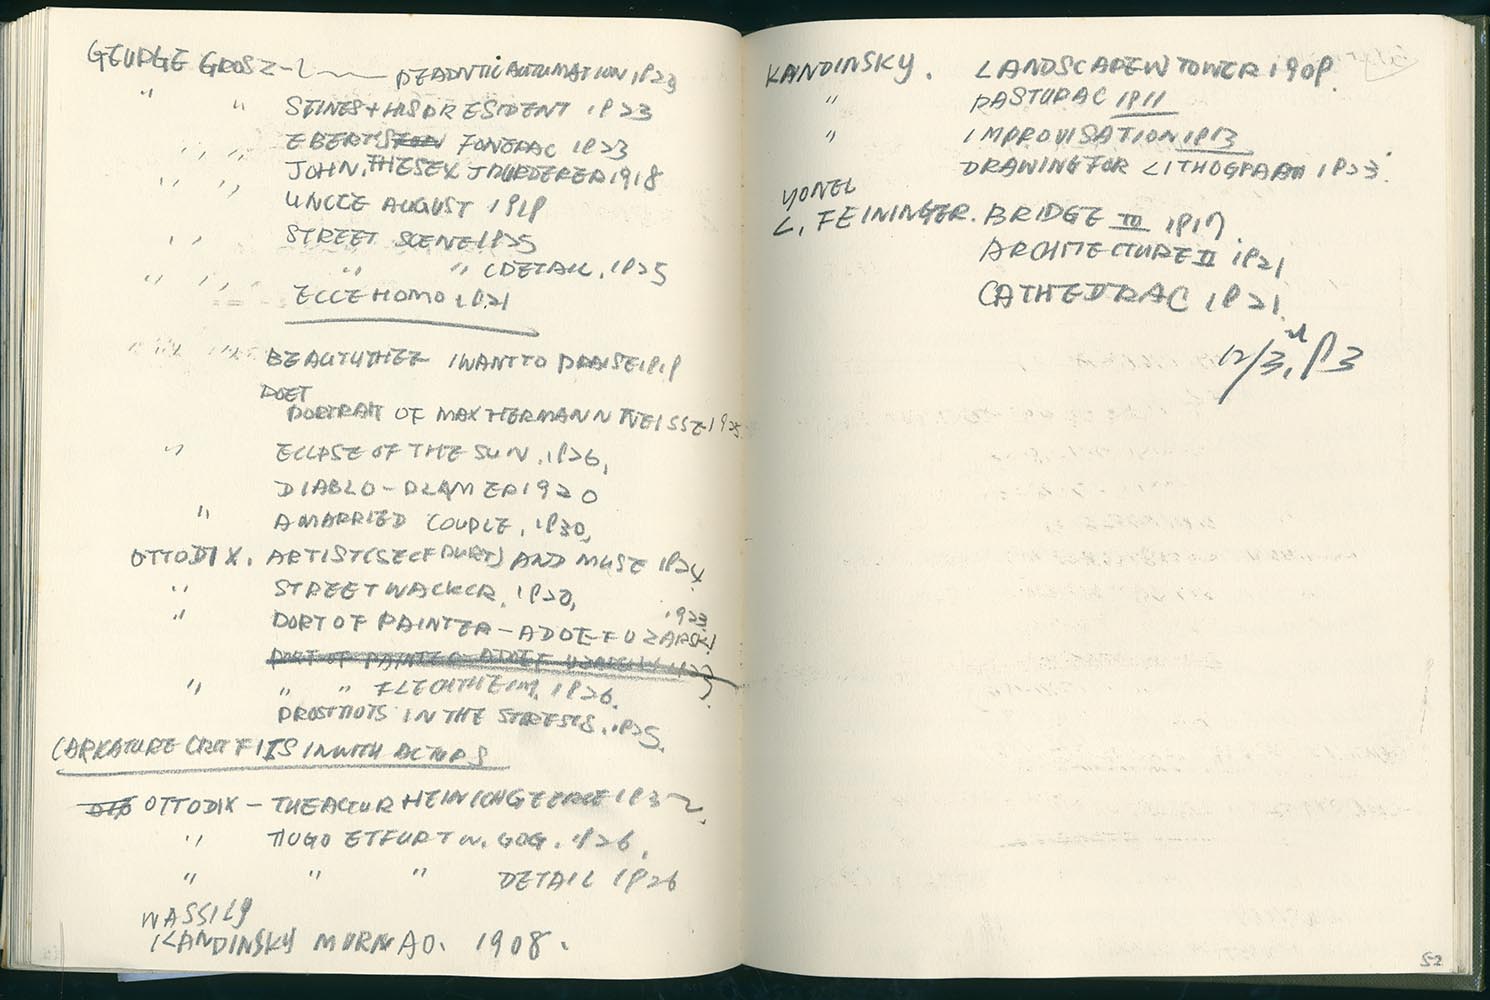 GEORGE GROSZ - PEADNTIC AUTOMATION 1923
" " STINES + HIS PRESIDENT 1923
EBERT'S FUNERAL 1923
" " " JOHN, THE SEX MURDERER 1918
" " " UNCLE AUGUST 1919
" " STREET SCENE 1925
" " (DETAIL. 1925
" " " ECCE HOMO, 1921
" " " " BEAUTY THEE I WANT TO PRAISE 1919
POET
PORTRAIT OF MAX HERMANN NEISSE 1925
" ECLPSE OF THE SUN. 1926,
DIABLO - PLAYMER 1920
" A MARRIED COUPLE. 1930,
OTTO DIX. ARTIST (SELF PORT) AND MUSE 1924
" STREET WALKER. 1920,
1923
" PORT OF PAINTER - ADOLF UZARSKI
PORT OF PAINTER - ADOLF UZARSKI 1923
" " " FLECHTHEIM. 1926.
PROSTITUTS IN THE STREETS. 1925.
OTTO DIX - THE ACTOR HEINICH GEORGE 1932,
" HUGO ERFURT W. DOG. 1926,
" " " DETAIL 1926
WASSILY
KANDINSKY MURNAO. 1908.
KANDINSKY. LANDSCAPE W TOWER 1909.
" PASTURAL 1911
" IMPROVISATION 1913
DRAWING FOR LITHOGRAPH 1923.
LYONEL
L. FEININGER. BRIDGE III 1917
ARCHITECTURE II 1921
CATHEDRAL 1921
12/3rd, 93
52